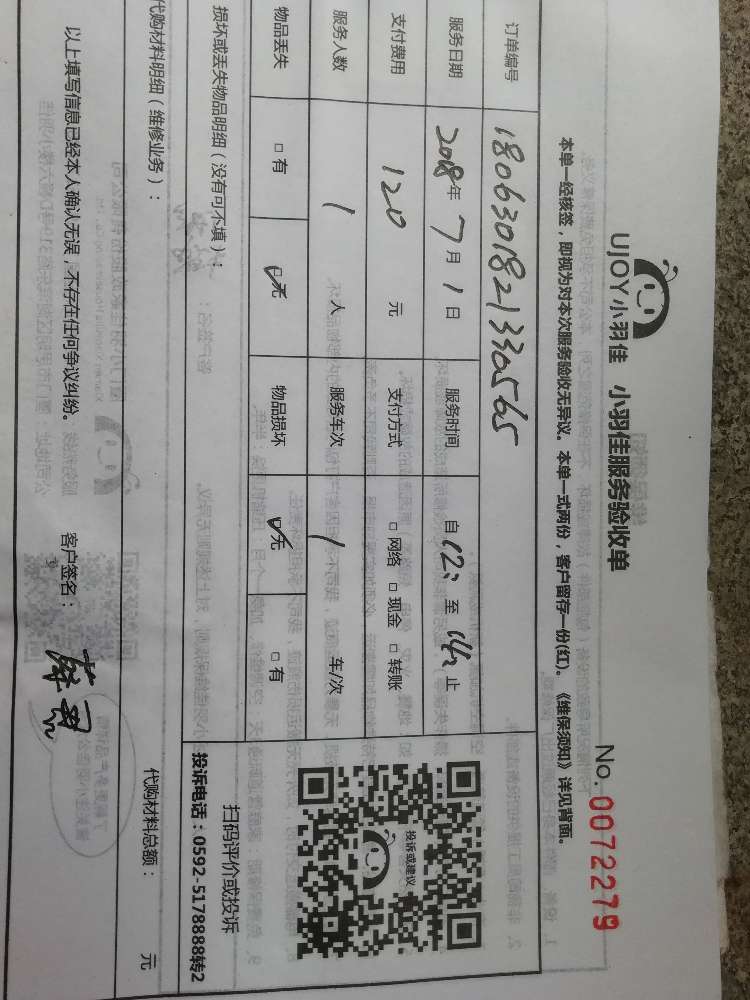 UJOY小羽佳 小羽佳服务验收单
No. 0072279
本单一经核签，即视为对本次服务验收无异议。本单一式两份，客户留存一份(红)。《维保须知》详见背面。
订单编号 1806301821330565
服务日期 2018年 7月 1日 服务时间 自 12: 至 14: 止
支付费用 120 元 支付方式 □ 网络 □ 现金 □ 转账
服务人数 1 人 服务车次 1 车/次
物品丢失 □ 有 ☑无 物品损坏 ☑无 □ 有
投诉或建议
扫码评价或投诉
投诉电话：0592-5178888转2
损坏或丢失物品明细（没有可不填）：
代购材料明细（维修业务）：
代购材料总额： 元
以上填写信息已经本人确认无误，不存在任何争议纠纷。 客户签名：